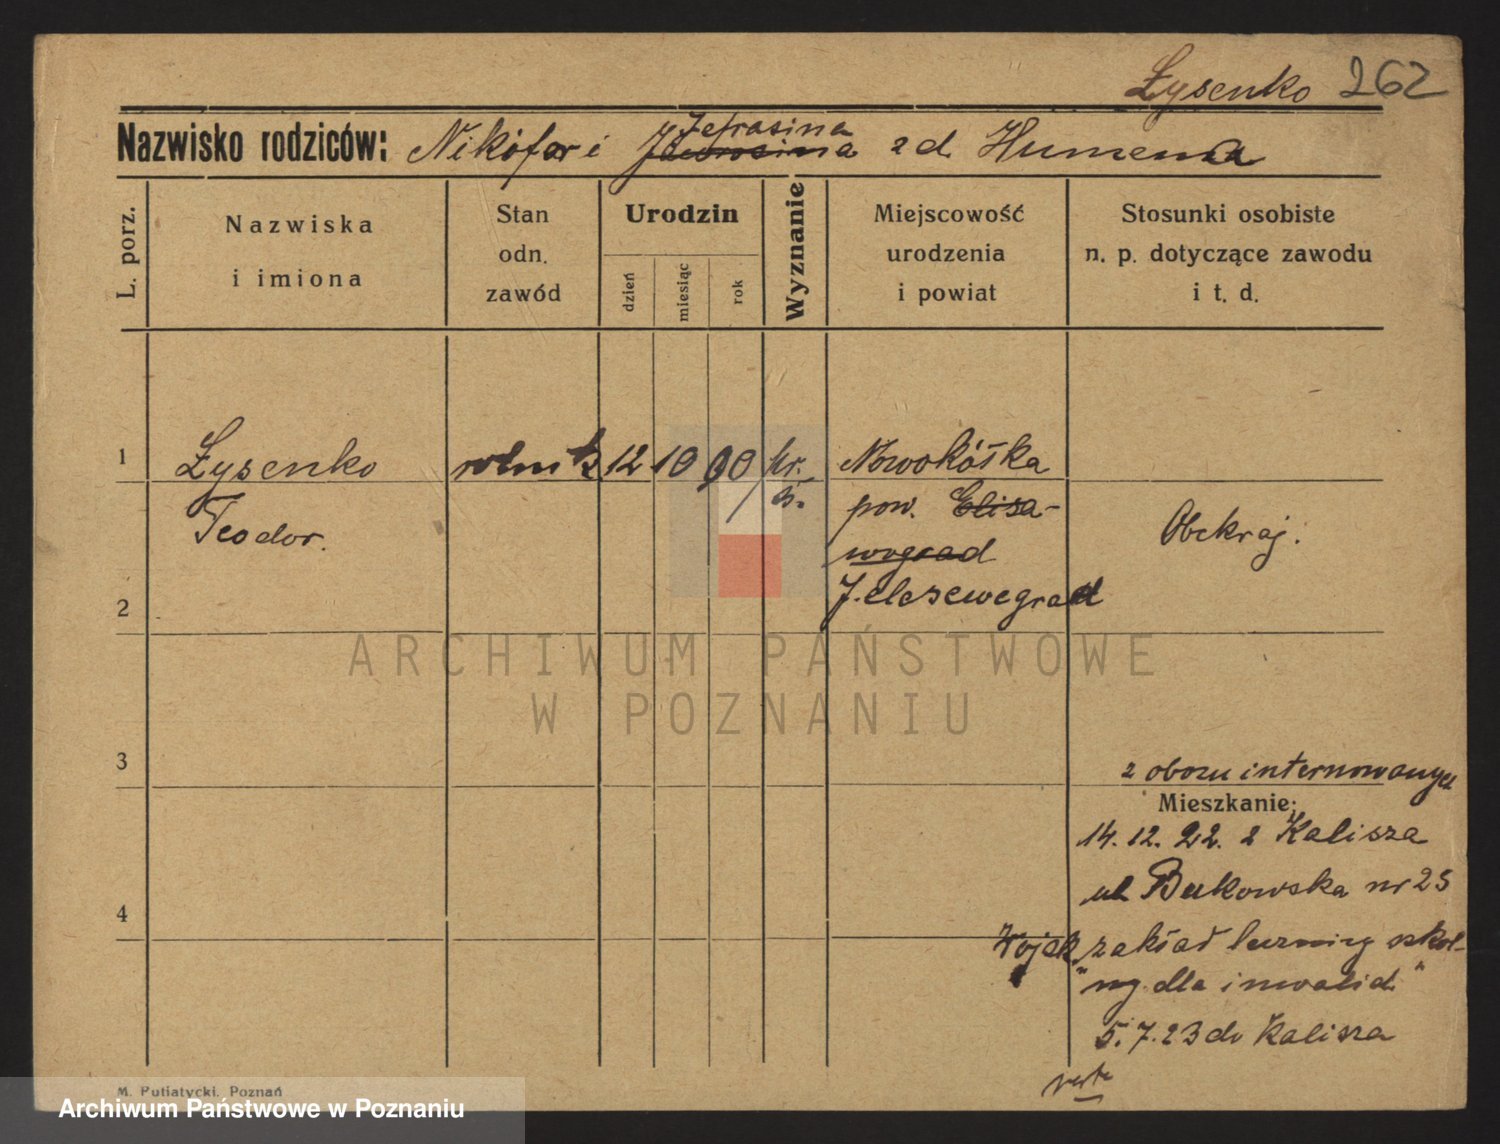 Łysenko 262
Nazwisko rodziców: Nikofor i Jefrasina zd. Humenna
L. porz.
Nazwiska
i imiona
Stan
odn.
zawód
Urodzin
dzień
miesiąc
rok
Wyznanie
Miejscowość
urodzenia
i powiat
Stosunki osobiste
n. p. dotyczące zawodu
i t. d.
1
Łysenko
Teodor.
rolnik
12
10
90
pow. Elisa-
wograd
Jelesewegrad
Nowokółka
Obckraj.
2
3
4
z obozu internowanych
Mieszkanie:
14. 12. 22. z Kalisza
ul Bukowska nr 25
Wojsk. zakład szkol-
ny dla inwalid."
5. 7. 23 do Kalisza
verte
M. Putiatycki, Poznań
ARCHIWUM PAŃSTWOWE
W POZNANIU
Archiwum Państwowe w Poznaniu